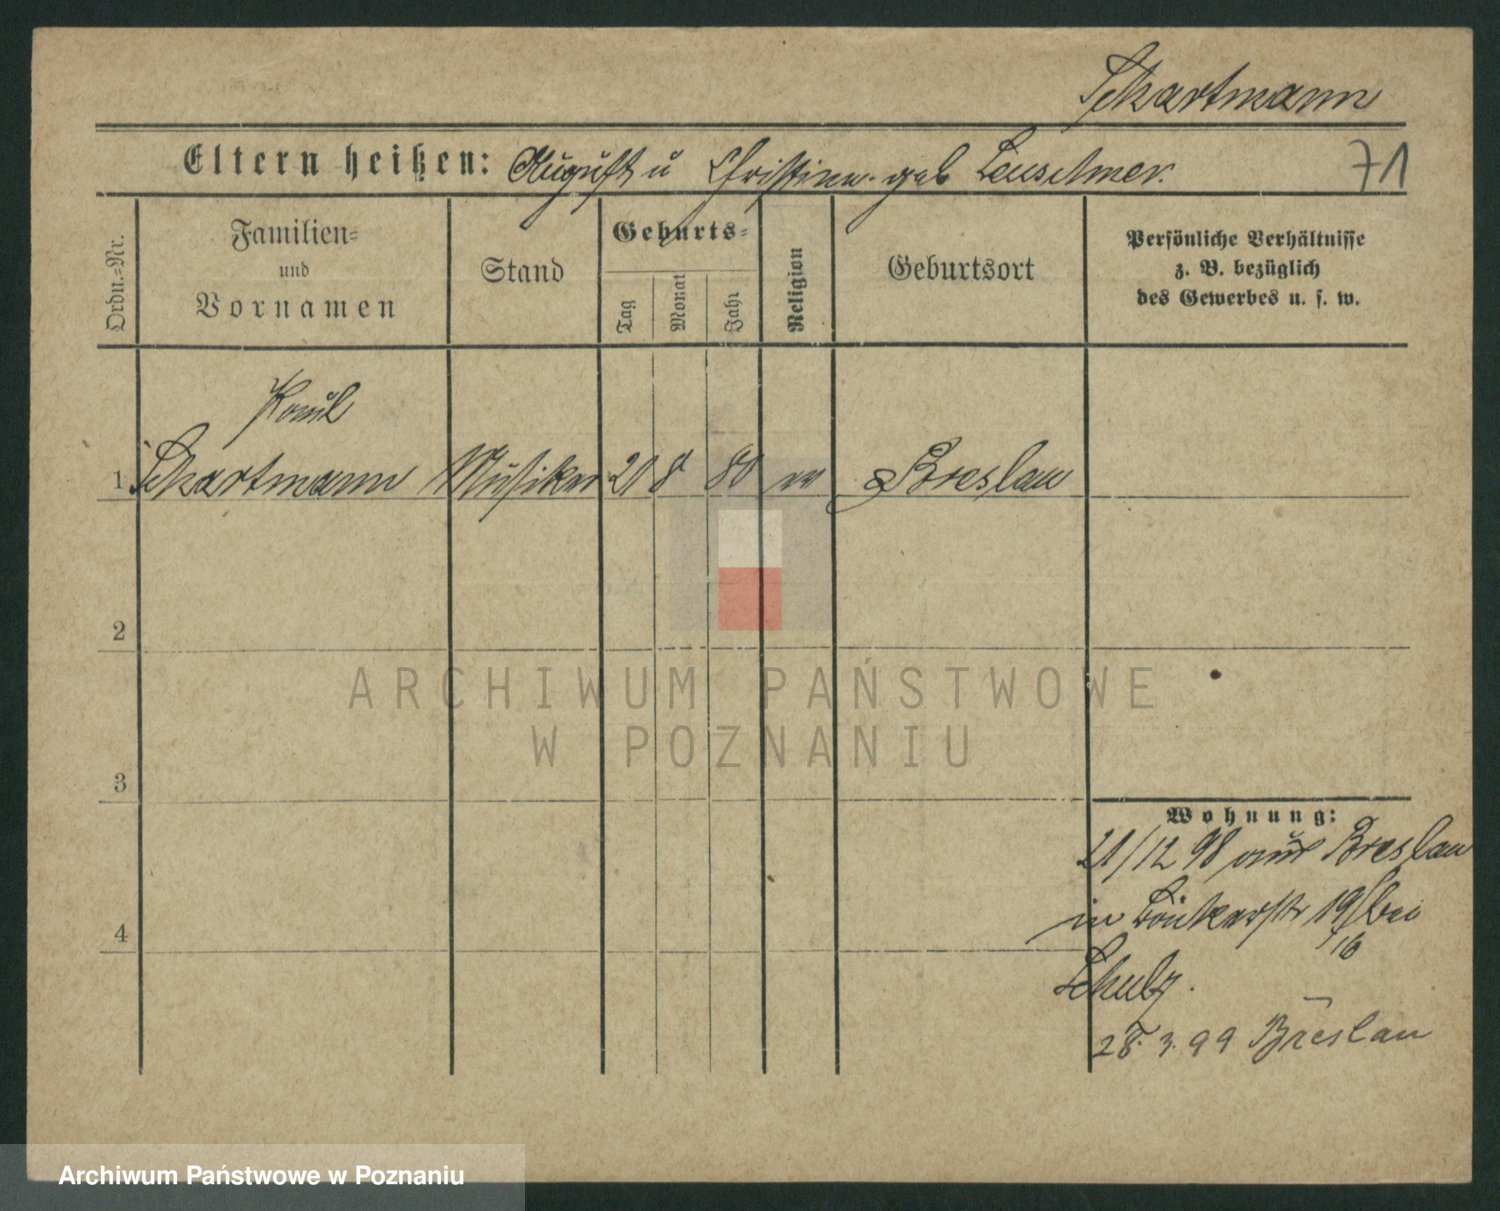 Schartmann
Eltern heißen: August u Christine geb
71
Ordn.-Nr.
Familien-
und
Vornamen
Stand
Geburts-
Tag
Monat
Jahr
Religion
Geburtsort
Persönliche Verhältnisse
z. B. bezüglich
des Gewerbes u. s. w.
Paul
1 Schartmann Musiker 20 8 80 ev Breslau
2
ARCHIWUM PAŃSTWOWE
W POZNANIU
3
Wohnung:
21/12 98 aus Breslau
in 19/bei
Schulz.
4
28.3.99 Breslau
Archiwum Państwowe w Poznaniu